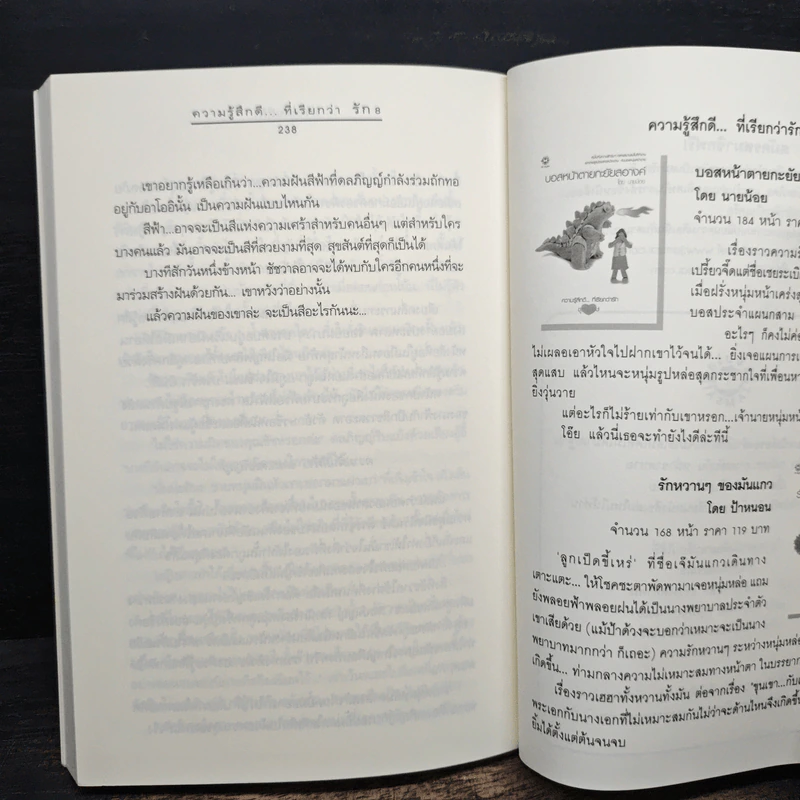 ความรู้สึกดี... ที่เรียกว่า รัก 8
238
เขาอยากรู้เหลือเกินว่า...ความฝันสีฟ้าที่ดลภิญญ์กำลังร่วมถักทอ
อยู่กับอาโออินั้น เป็นความฝันแบบไหนกัน
สีฟ้า...อาจจะเป็นสีแห่งความเศร้าสำหรับคนอื่นๆ แต่สำหรับใคร
บางคนแล้ว มันอาจจะเป็นสีที่สวยงามที่สุด สุขสันต์ที่สุดก็เป็นได้
บางทีสักวันหนึ่งข้างหน้า ชัชวาลอาจจะได้พบกับใครอีกคนหนึ่งที่จะ
มาร่วมสร้างฝันด้วยกัน... เขาหวังว่าอย่างนั้น
แล้วความฝันของเขาล่ะ จะเป็นสีอะไรกันนะ...
ความรู้สึกดี... ที่เรียกว่ารัก
บอสหน้าตายกะยัยลอางค์
ความรู้สึกดี... ที่เรียกว่ารัก
บอสหน้าตายกะยัย
โดย นายน้อย
จำนวน 184 หน้า
เรื่องราวความ
เปรี้ยวจี๊ดแต่ชื่อเชยระเบิ
เมื่อฝรั่งหนุ่มหน้าเคร่ง
บอสประจำแผนกสาม
อะไรๆ ก็คงไม่ค่อ
ไม่เผลอเอาหัวใจไปฝากเขาไว้จนได้... ยิ่งเจอแผนการ
สุดแสบ แล้วไหนจะหนุ่มรูปหล่อสุดกระชากใจที่เพื่อน
ยิ่งวุ่นวาย
แต่อะไรก็ไม่ร้ายเท่ากับเขาหรอก...เจ้านายหนุ่มหน้
โอ๊ย แล้วนี่เธอจะทำยังไงดีล่ะทีนี้
รักหวานๆ ของมันแกว
โดย ป้าหนอน
จำนวน 168 หน้า ราคา 119 บาท
'ลูกเป็ดขี้เหร่' ที่ชื่อเจ๊มันแกวเดินทาง
เตาะแตะ... ให้โชคชะตาพัดพามาเจอหนุ่มหล่อ แถม
ยังพลอยฟ้าพลอยฝนได้เป็นนางพยาบาลประจำตัว
เขาเสียด้วย (แม้ป้าด้วงจะบอกว่าเหมาะจะเป็นนาง
พยาบาทมากกว่า ก็เถอะ) ความรักหวานๆ ระหว่างหนุ่มหล่อ
เกิดขึ้น... ท่ามกลางความไม่เหมาะสมทางหน้าตา ในบรรยาก
เรื่องราวเฮฮาทั้งหวานทั้งมัน ต่อจากเรื่อง 'ขุนเขา...กับ
พระเอกกับนางเอกที่ไม่เหมาะสมกันไม่ว่าจะด้านไหนจึงเกิดขึ้น
ยิ้มได้ตั้งแต่ต้นจนจบ